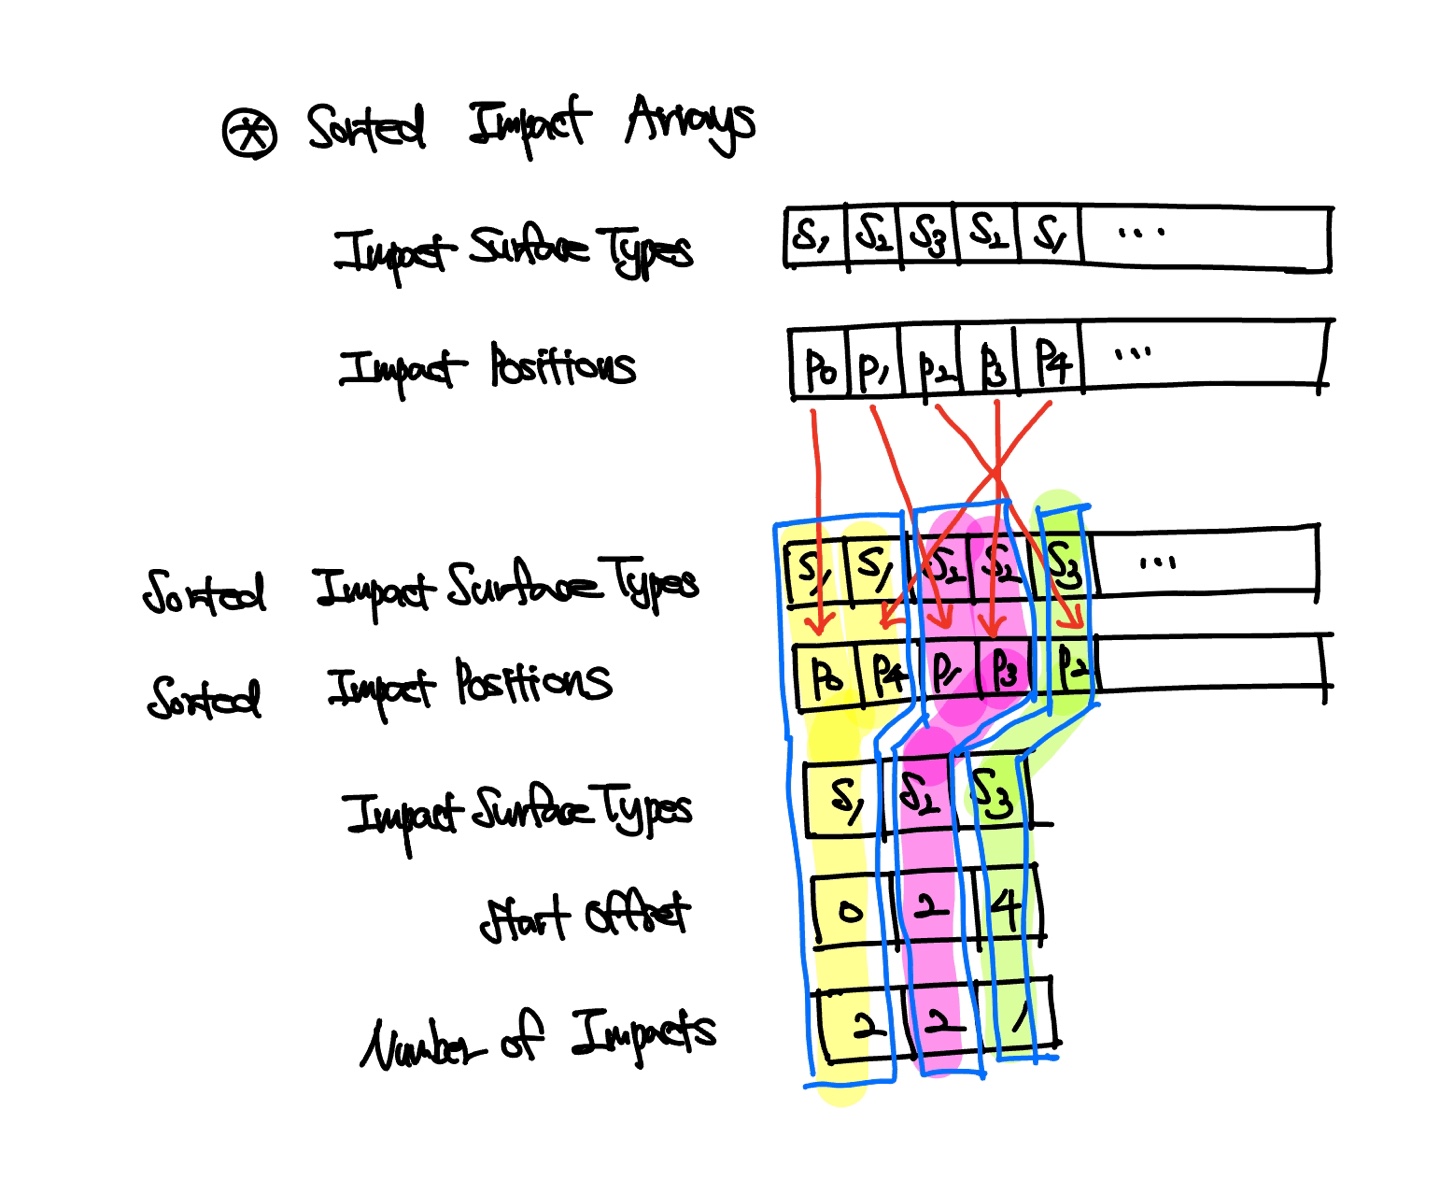 ⊛ Sorted Impact Arrays
Impact Surface Types S1 S2 S3 S2 S1 ...
Impact Positions P0 P1 P2 P3 P4 ...
Sorted Impact Surface Types S1 S1 S2 S2 S3 ...
Sorted Impact Positions P0 P4 P1 P3 P2
Impact Surface Types S1 S2 S3
Start Offset 0 2 4
Number of Impacts 2 2 1